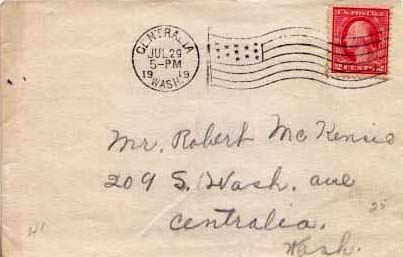 CENTRALIA
JUL 29
5-PM
1919
WASH.
U.S. POSTAGE
2 CENTS 2
Mr. Robert McKensie
209 S. Wash. ave
Centralia.
Wash.
25
H1